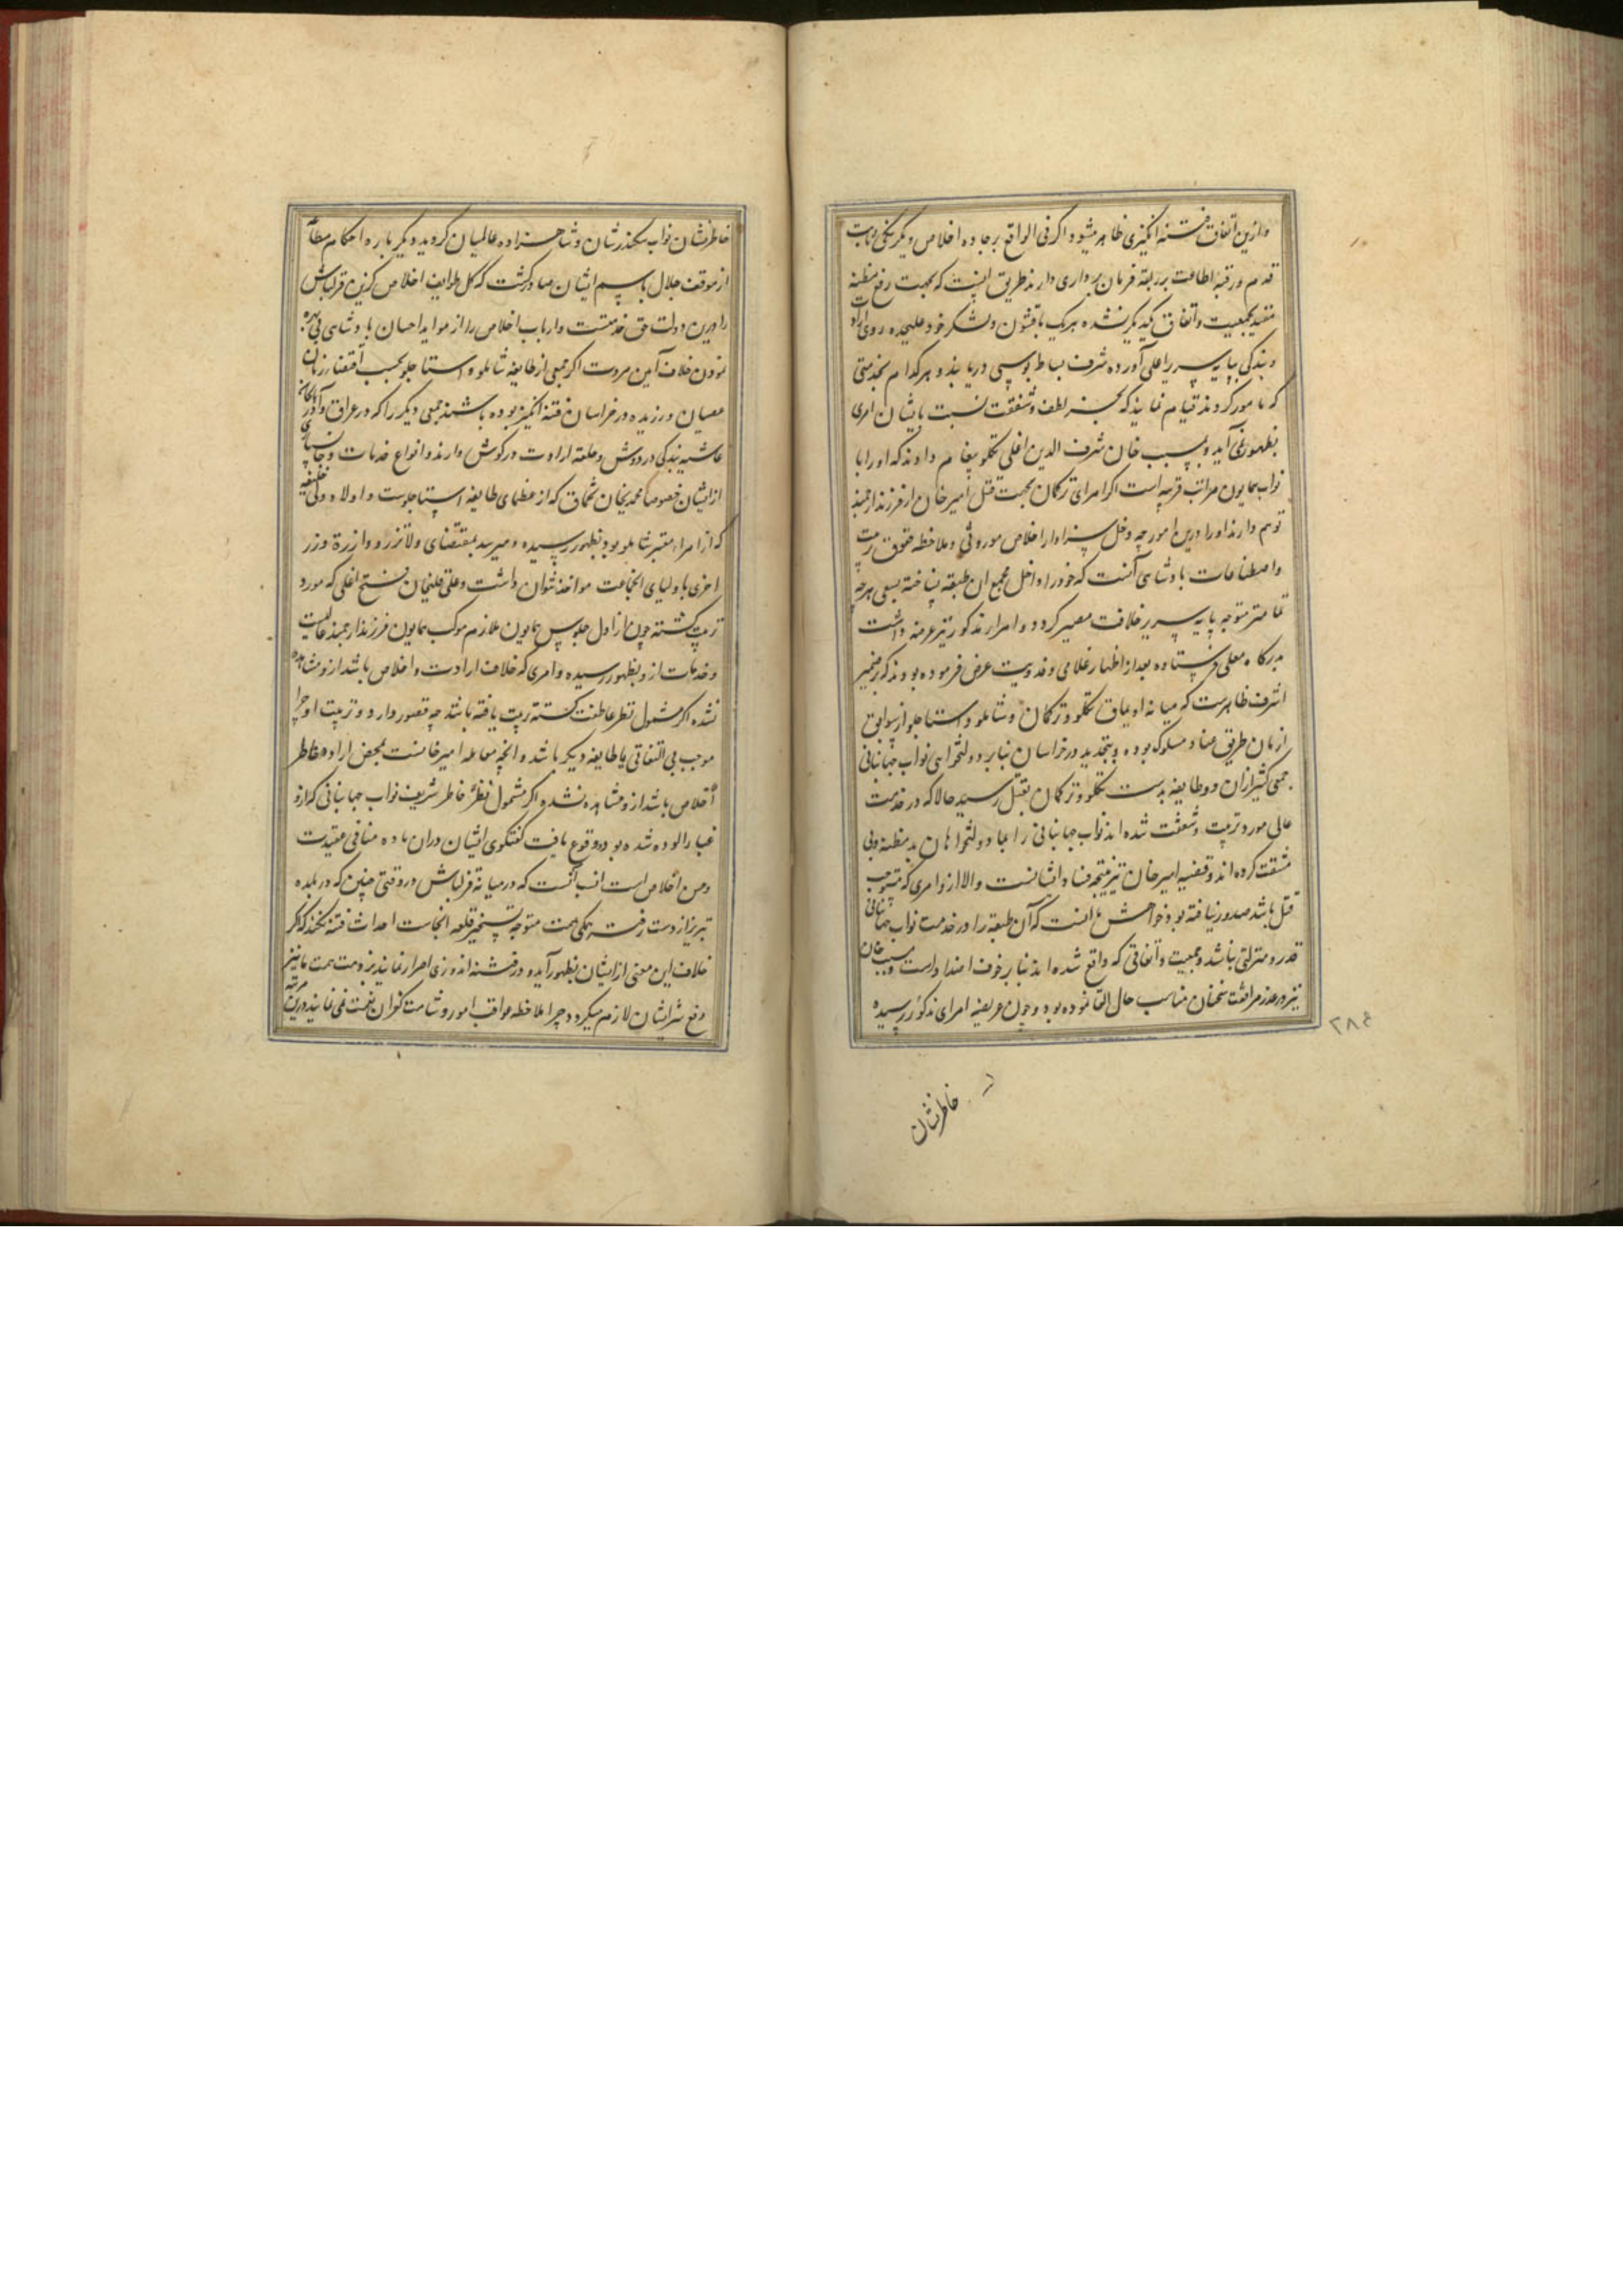 وازین اتفاق فتنه انگیزی ظاهر میشود و اگر فی الواقع بر جاده اخلاص و یکرنگی ثابت
قدم و رقبه اطاعت بربقه فرمان برداری دارند طریق اینست که بجهت رفع مظنه
مقید بجمعیت و اتفاق یکدیگر نشده هر یک با قشون و لشکر خود علیحده روی ارادت
و بندگی بپایه سریر اعلی آورده شرف بساط بوسی دریابند و هر کدام بخدمتی
که مامور گردند قیام نمایند که بجز لطف و شفقت نسبت بایشان امری
بظهور نمی آید و بمسیب خان شرف الدین اغلی تکلو پیغام دادند که او را با
نواب همایون مراتب قربه است اگر امرای ترکمان بجهت قتل امیر خان از فرزند ارجمند
توهم دارند او را درین امور چه دخل سزاوار اخلاص موروثی و ملاحظه حقوق تربیت
و اصطناعات پادشاهی آنست که خود را داخل مجمع ان طبقه نساخته بسعی هر چه
تمامتر متوجه پایه سریر خلافت مصیر گردد و امراء مذکور نیز عرضه داشت
بدرگاه معلی فرستاده بعد از اظهار غلامی و فدویت عرض فرموده بودند که بر ضمیر
اشرف ظاهرست که میانه اویماق تکلو و ترکمان و شاملو و استاجلو از سوابق
ازمان طریق عناد مسلوک بوده و بتجدید در خراسان بنابر دولتخواهی نواب جهانبانی
جمعی کثیر ازان دو طایفه بدست تکلو و ترکمان بقتل رسید حالا که در خدمت
عالی مورد تربیت و شفقت شده اند نواب جهانبانی را بما دولتخواهان بد مظنه و بی
شفقت کرده اند و قضیه امیر خان نیز نتیجه فساد ایشانست والا ازو امری که مستوجب
قتل باشد صدور نیافته بود خواهش ما انست که آن طبقه را در خدمت نواب جهانبانی
قدر و منزلتی نباشد و جمعیت و اتفاقی که واقع شده اند بنابر خوف اعدا و است و مسیب خان
نیز در عذر مرافقت سخنان مناسب حال القا نموده بود و چون عریضه امرای مذکور رسیده
۲۸۴
خاطرنشان
خاطرنشان نواب سکندرشان و شاهزاده عالمیان گردید دیگر باره احکام مطاع
از موقف جلال باسم ایشان صادر گشت که کل طوایف اخلاص گزین قزلباش
را درین دولت حق خدمتست و ارباب اخلاص را از مواید احسان پادشاهی بی بهره
نمودن خلاف آیین مروت اگر جمعی از طایفه شاملو و استاجلو بحسب اقتضاء زمان
عصیان ورزیده در خراسان فتنه انگیز بوده باشند جمعی دیگر را که در عراق و آذربایجان
غاشیه بندگی در دوش و حلقه ارادت در گوش دارند و انواع خدمات و جانسپاری
از ایشان خصوصا محمدی خان تخماق که از عظمای طایفه استاجلوست و اولاد ولی خلیفه
که از امراء معتبر شاملو بود بظهور رسیده و میرسد بمقتضای ولا تزر وازرة وزر
اخری باولیای انجماعت مواخذ نتوان داشت و علی قلیخان فتح اغلی که مورد
تربیت گشته چون از اول جلوس همایون ملازم موکب همایون فرزند ارجمند عالیست
و خدمات ازو بظهور رسیده و امری که خلاف ارادت و اخلاص باشد ازو مشاهده
نشده اگر مشمول نظر عاطفت گشته تربیت یافته باشد چه قصور دارد و تربیت او چرا
موجب بی التفاتی با طایفه دیگر باشد و انچه معامله امیر خانست بمحض اراده خاطر
اخلاص باشد ازو مشاهده نشده اگر مشمول نظر خاطر شریف نواب جهانبانی که ازو
غبار الوده شده بود وقوع یافت گفتگوی ایشان دران ماده منافی عقیدت
و حسن اخلاص است انسب آنست که در میانه قزلباش در وقتی چنین که بلده
تبریز از دست رفته همگی همت متوجه تسخیر قلعه انجاست احداث فتنه نکنند که اگر
خلاف این معنی از ایشان بظهور آید و در فتنه اندوزی اصرار نمایند بر ذمت همت ما نیز
دفع شر ایشان لازم میگردد چرا ملاحظه عواقب امور و شامت کفران نعمت نمی نمایند درین مرتبه